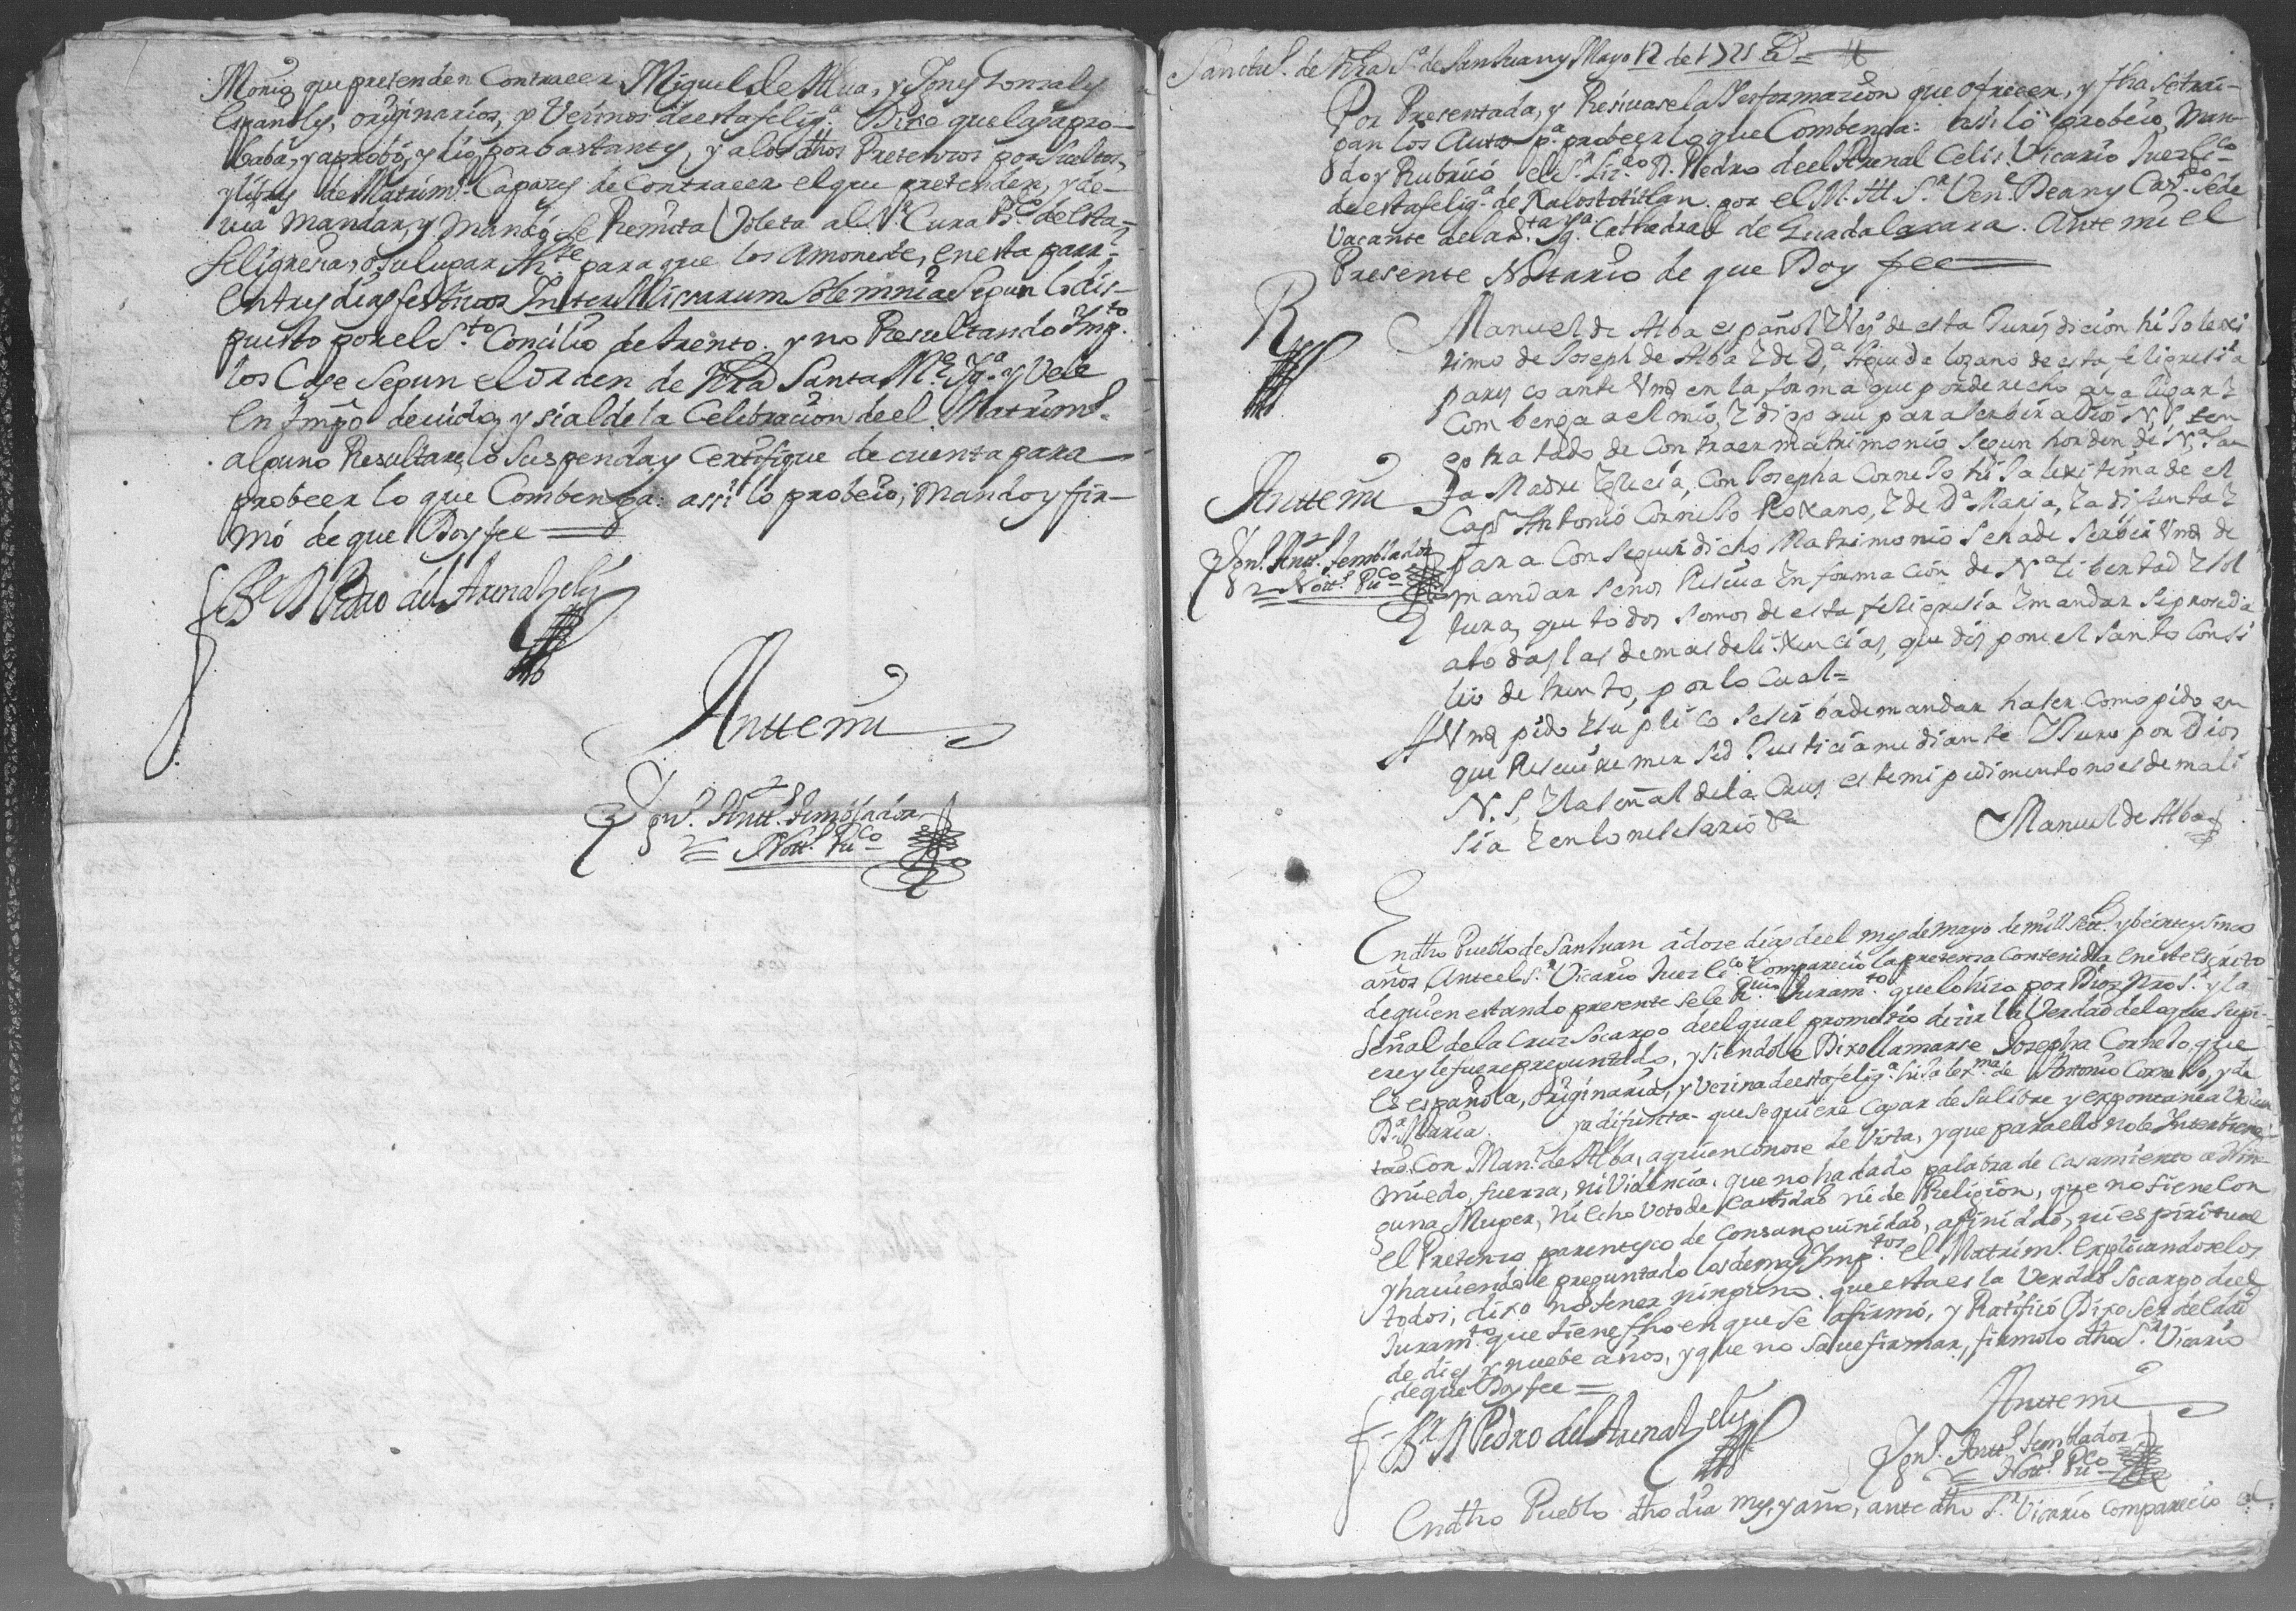 Monio, que pretenden Contraer Miguel de Alva, y Ynes Gonzales
Españoles, originarios, y Vezinos de esta felig.ª Dixo que las apro-
baba, y aprobó, y dió por bastantes, y a los dhos Pretensos por sueltos,
y libres de Matrim.º Capazes de Contraer el que pretenden, y de-
via mandar, y mandó se Remita Voleta al S.r Cura B.do de esta
feligresia, o su lugar Th.te para que los amoneste, en esta parr.ª
en tres dias festivos Inter Missarum Solemnia Segun lo dis-
puesto por el S.to Concilio de trento. y no Resultando Imp.to
los Case segun el orden de Ntra Santa M.e Yg.ª y Vele
en tmpo devido, y si al de la Celebracion de el Matrim.º
alguno Resultare, lo suspenda, y Certifique de cuenta para
probeer lo que Combenga: assi lo probeio, mando y fir-
mó de que Doy fee
B.r D Pedro del Arenal Zelis
Antte mi
Ygn.º Antt.º Semblador
Nott.º Pu.co
Sanctus. de Ntra S.ª de San Juan y Mayo 12 de 1725 a.s
Por Presentada, y Resivasele la Ynformazion que ofrecen, y fha se trai-
gan los Autos p.ª probeer lo que Combenga: assi lo probeio, man-
do y Rubricó el S.r Liz.do D. Pedro de el Arenal Celis Vicario Juez Ec.co
de esta felig.ª de Xalostotitlan por el M. Ill S.r Ven.e Dean y Cav.do Sede
Vacante de la S.ta Yg.ª Cathedral de Guadalaxara. Ante mi el
Presente Notario de que Doy fee
Antte mi
Ygn.º Antt.º Semblador
Nott.º Pu.co
Manuel de Alba español Y Veº de esta Jurisdicion hiso lexi
timo de Joseph de Alba Y de D.ª Agueda lozano de esta feligresia
paresco ante Vmd en la forma que por derecho aya lugar Y
Combenga a el mio, Y digo que para serbir a Dios N. S. ten
go tratado de Contraer matrimonio segun horden de N.ª San
ta Madre Yglecia, Con Josepha Cornexo hisa lexitima de el
Capp.n Antonio Cornexo Roxano, Y de D.ª Maria, Ya difunta Y
para Conseguir dicho Matrimonio se ha de serbir Vmd de
mandar se nos Resiva Ynformacion de N.ª libertad Y sol
tura, que todos somos de esta feligresia Y mandar se proseda
a todas las demas delixencias, que dispone el santo Consi
lio de trento, por lo Cual=
A Vmd pido Y suplico se sirba de mandar haser Como pido en
que Resivire mersed Justicia mediante Y Juro por Dios
N. S, Y la señal de la Crus este mi pedimento no es de mali
sia Y en lo nesesario &a
Manuel de Alba
En dho Pueblo de San Juan a doze dias de el mes de Mayo de mill sett.s y beinte y sinco
años, Ante el S.r Vicario Juez Ec.co Comparecio la pretensa Contenida en este escrito
de quien estando presente se le R.vio Juram.to que lo hizo por Dios Nro S.r y la
señal de la Cruz so cargo de el qual prometio dezir la Verdad de lo que supi-
ere y le fuere preguntado, y siendole Dixo llamarse Josepha Cornelo, que
es española, originaria, y vezina de esta felig.ª hija lex.ma de Antonio Cornelo, y de
D.ª Maria ya difunta. que se quiere Casar de su libre y expontanea Volun
tad. Con Man.l de Alba, a quien conose de Vista, y que para ello no le Interbiene
miedo, fuerza, ni Violencia. que no ha dado palabra de Casamiento a nin-
guna Muger, ni echo Voto de Castidad ni de Religion, que no tiene Con
el Pretenso parentesco de Consanguinidad, afinidad, ni espiritual
y haviendole preguntado los demas Imp.tos el Matrim.º explicandoselos
todos; dixo no tener ninguno. que esta es la Verdad so cargo de el
Juram.to que tiene fho en que se afirmó, y Ratificó Dixo ser de edad
de dies y nuebe años, y que no save firmar, firmolo dho S.r Vicario
de que Doy fee =
B.r D Pedro del Arenal Zelis
Antte mi
Ygn.º Antt.º Semblador
Nott.º Pu.co
En dho Pueblo dho dia mes, y año, ante dho S.r Vicario Comparecio el